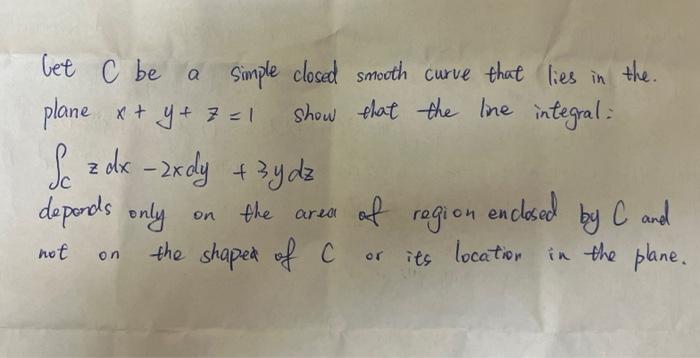 Let C be a simple closed smooth curve that lies in the.
plane x + y + z = 1 show that the line integral:
∫_C z dx - 2x dy + 3y dz
depends only on the area of region enclosed by C and
not on the shaped of C or its location in the plane.